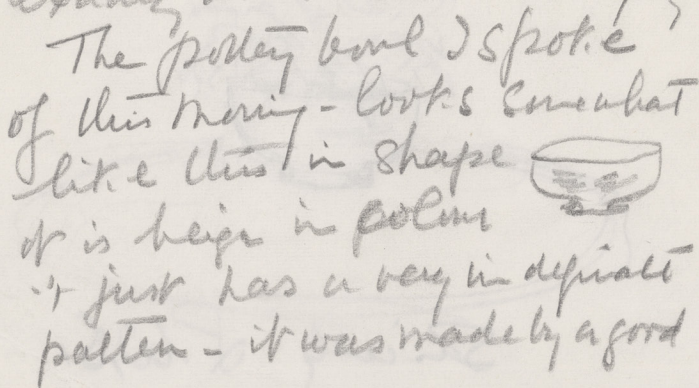 The pottery bowl I spoke
of this morning - looks somewhat
like this in shape
it is beige in colour
it just has a very indefinite
pattern - it was made by a good